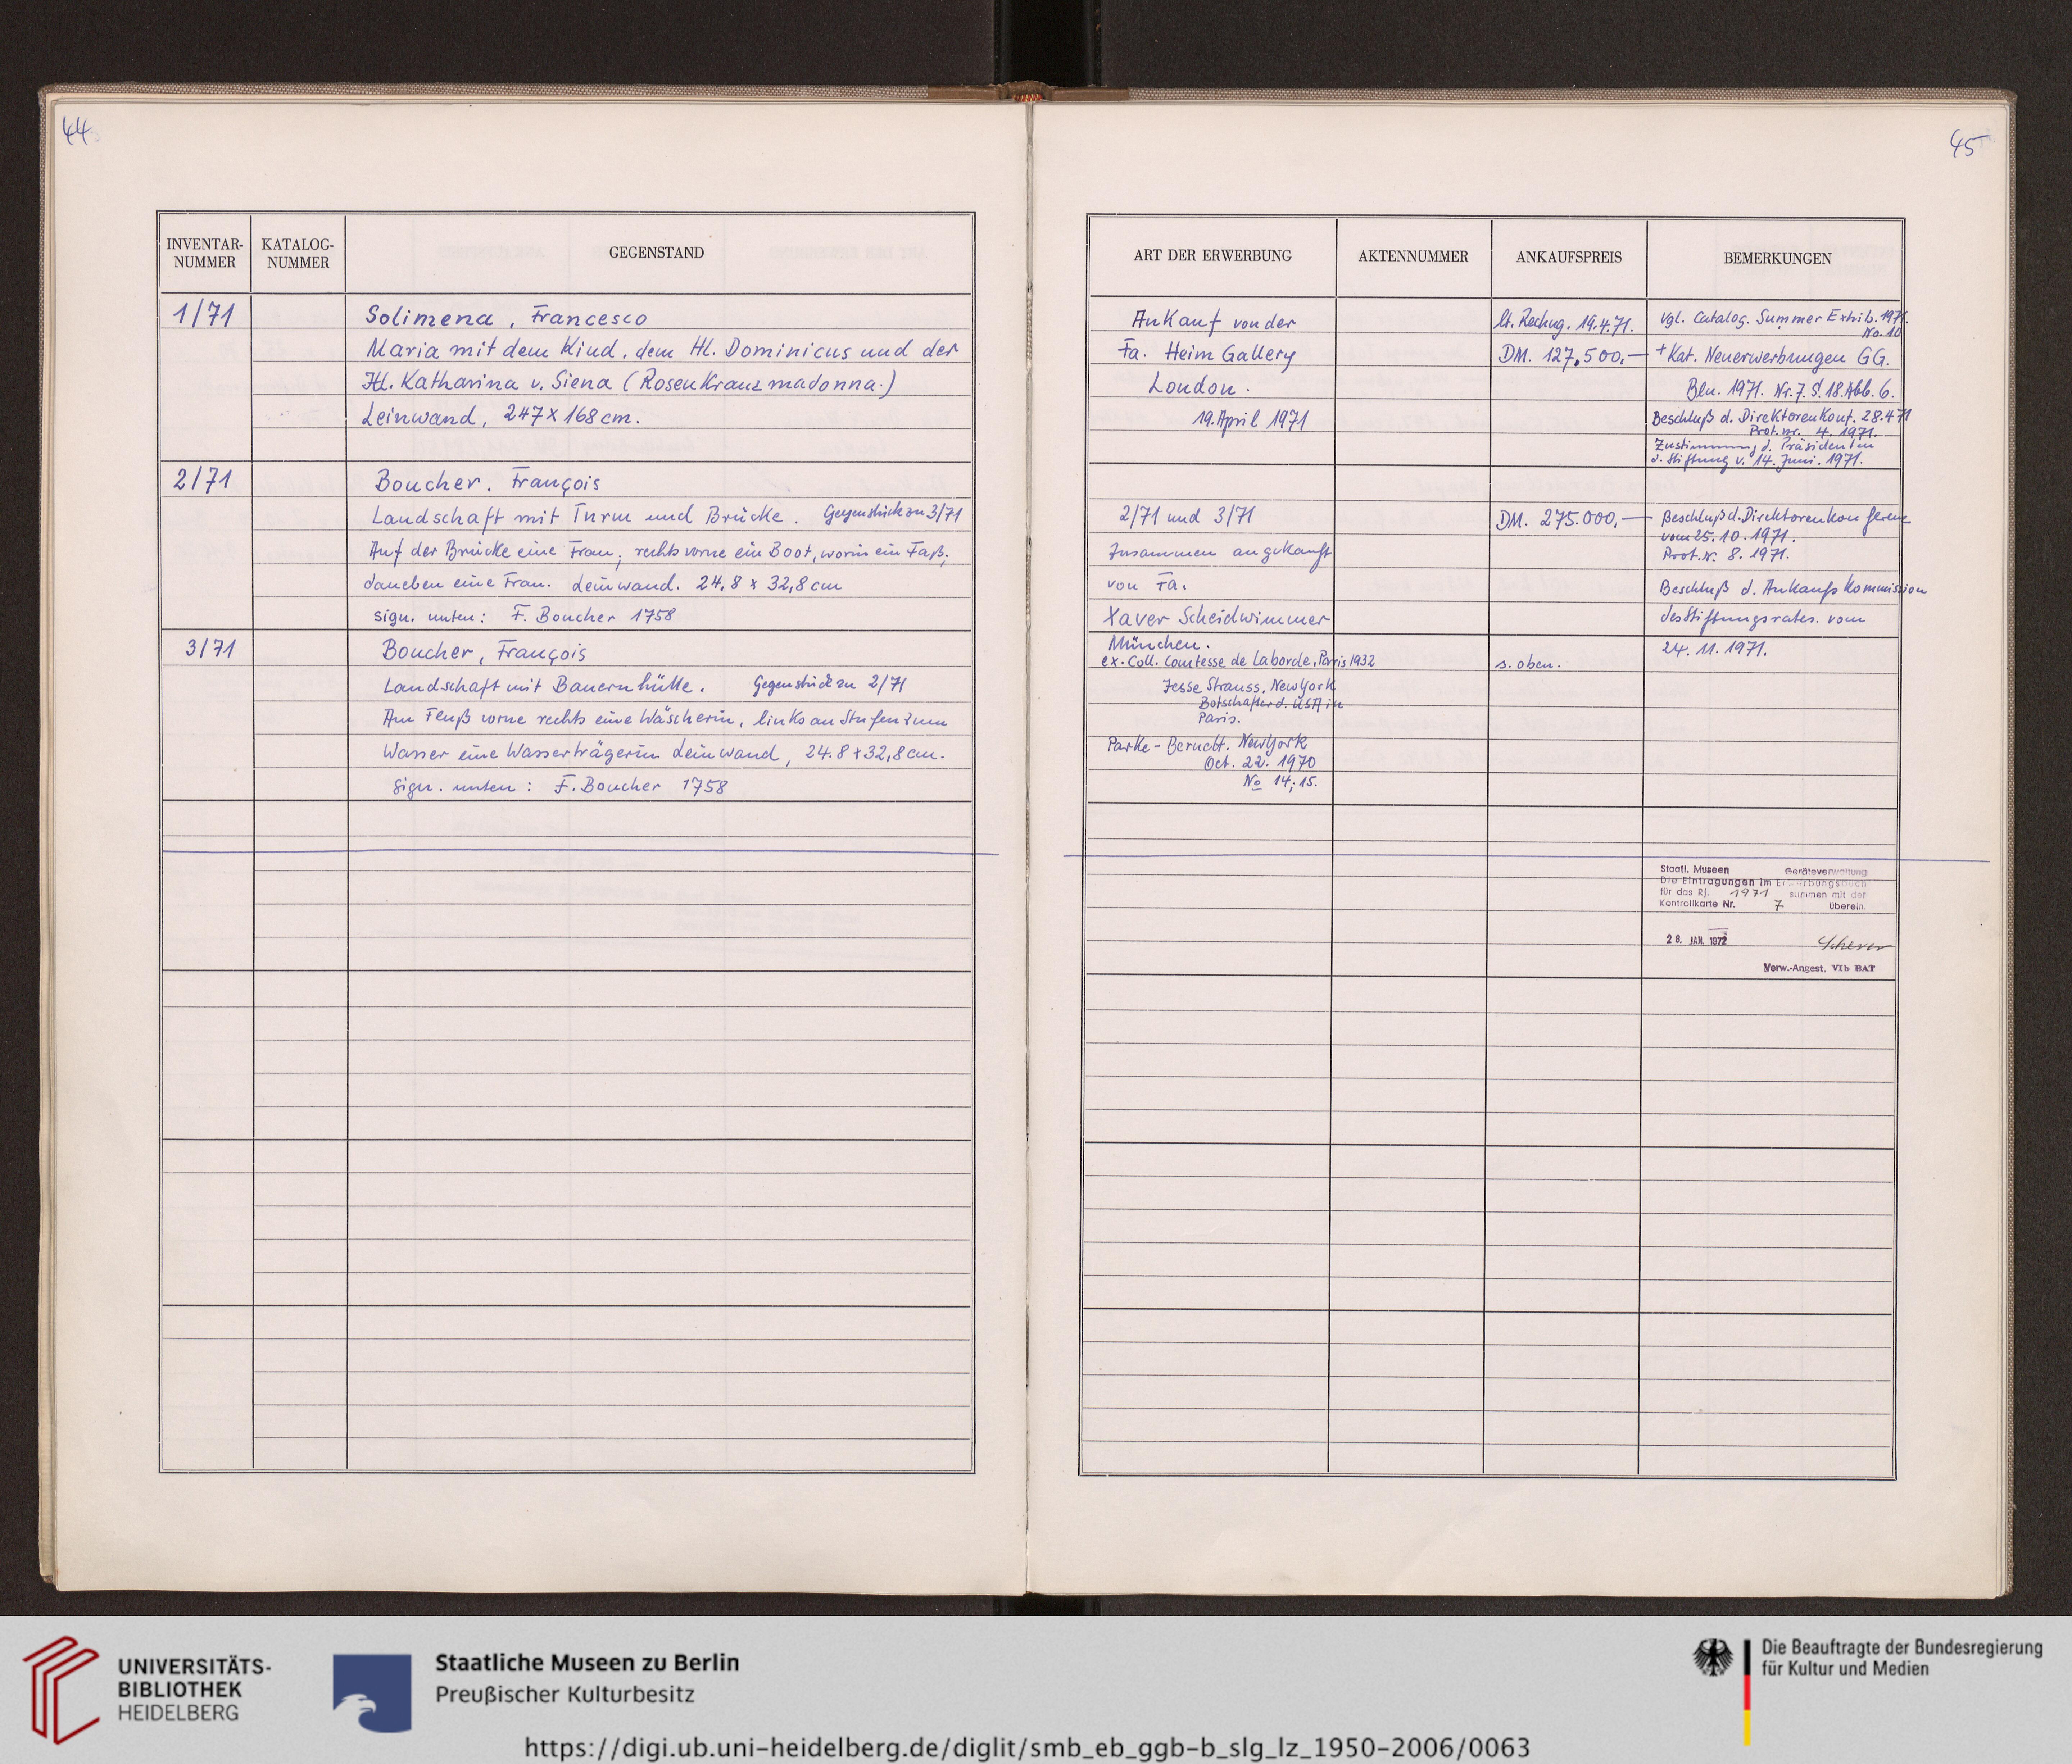 44
INVENTAR-
NUMMER
KATALOG-
NUMMER
GEGENSTAND
1/71
Solimena, Francesco
Maria mit dem Kind, dem Hl. Dominicus und der
Hl. Katharina v. Siena (Rosenkranzmadonna.)
Leinwand, 247 x 168 cm.
2/71
Boucher, François
Landschaft mit Turm und Brücke. Gegenstück zu 3/71
Auf der Brücke eine Frau; rechts vorne ein Boot, worin ein Faß;
daneben eine Frau. Leinwand. 24,8 x 32,8 cm
sign. unten: F. Boucher 1758
3/71
Boucher, François
Landschaft mit Bauernhütte. Gegenstück zu 2/71
Am Fluß vorne rechts eine Wäscherin, links an Stufen zum
Wasser eine Wasserträgerin Leinwand, 24.8 x 32,8 cm.
sign. unten: F. Boucher 1758
45
ART DER ERWERBUNG
AKTENNUMMER
ANKAUFSPREIS
BEMERKUNGEN
Ankauf von der
Fa. Heim Gallery
London.
19. April 1971
lt. Rechng. 19.4.71.
DM. 127.500.—
vgl. Catalog. Summer Exhib. 1971.
No. 10
+ Kat. Neuerwerbungen GG.
Bln. 1971. Nr. 7. S. 18. Abb. 6.
Beschluß d. Direktorenkonf. 28.4.71
Prot. nr. 4. 1971.
Zustimmung d. Präsidenten
d. Stiftung v. 14. Juni. 1971.
2/71 und 3/71
zusammen angekauft
von Fa.
Xaver Scheidwimmer
München.
DM. 275.000,—
Beschluß d. Direktorenkonferenz
vom 25.10.1971.
Prot. Nr. 8. 1971.
Beschluß d. Ankaufskommission
des Stiftungsrates. vom
24. 11. 1971.
ex. Coll. Comtesse de Laborde, Paris 1932
s. oben.
Jesse Strauss, New York
Botschafter d. USA in
Paris.
Parke-Bernett. New York
Oct. 22. 1970
No 14; 15.
Staatl. Museen Geräteverwaltung
Die Eintragungen im Erwerbungsbuch
für das Rj. 1971 stimmen mit der
Kontrollkarte Nr. 7 überein.
28. JAN. 1972
Verw.-Angest. VIb BAT
UNIVERSITÄTS-
BIBLIOTHEK
HEIDELBERG
Staatliche Museen zu Berlin
Preußischer Kulturbesitz
Die Beauftragte der Bundesregierung
für Kultur und Medien
https://digi.ub.uni-heidelberg.de/diglit/smb_eb_ggb-b_slg_lz_1950-2006/0063